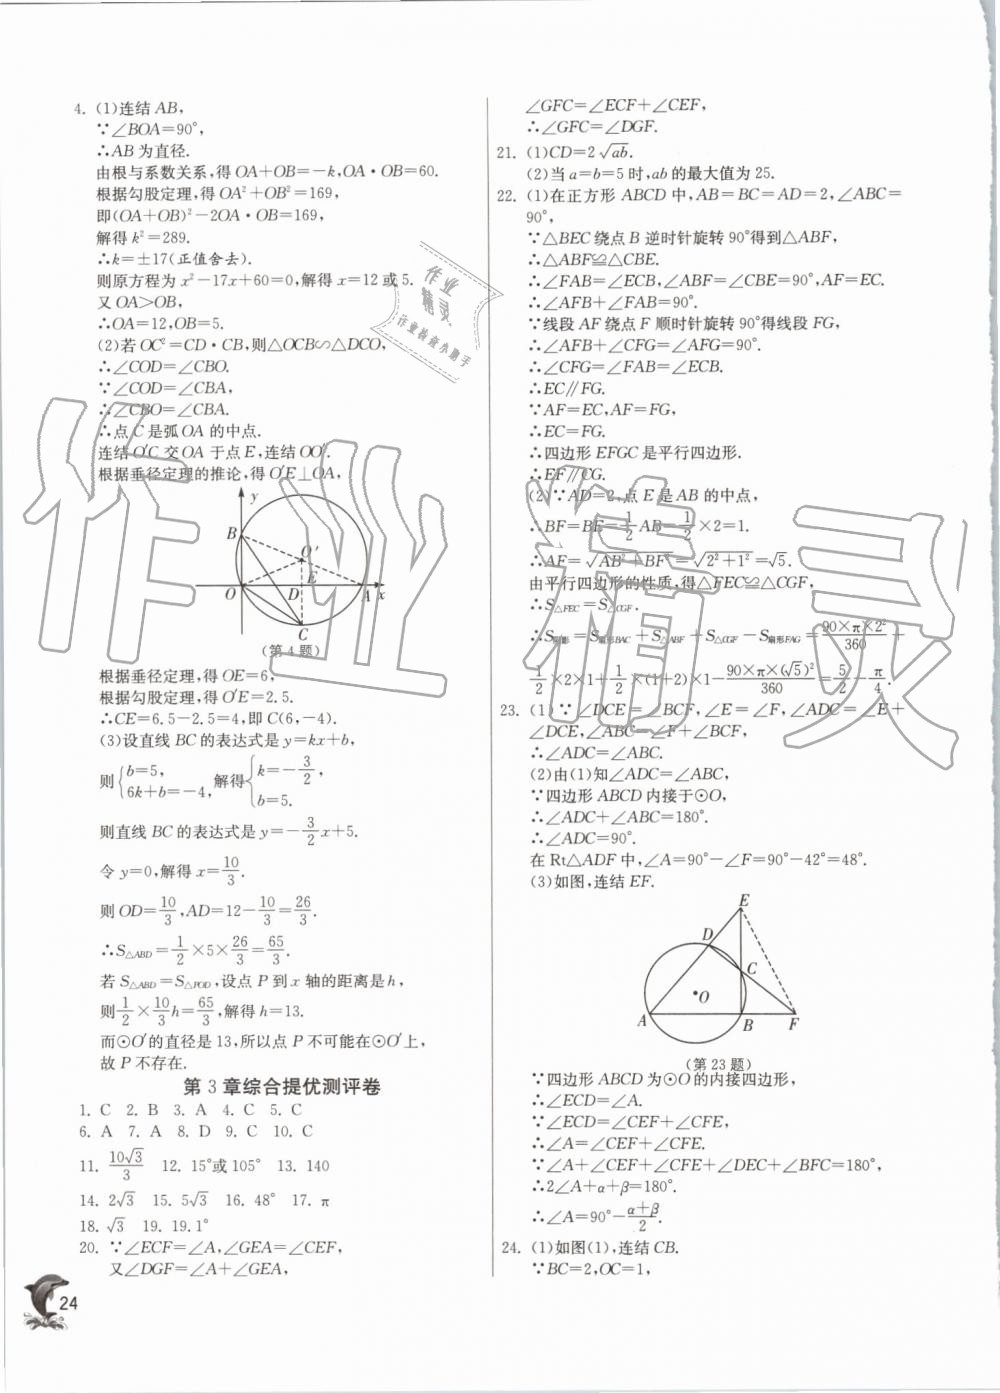 4. (1)连结 AB,
∵∠BOA=90°,
∴AB 为直径.
由根与系数关系,得 OA+OB=-k,OA·OB=60.
根据勾股定理,得 OA²+OB²=169,
即(OA+OB)²-2OA·OB=169,
解得 k²=289.
∴k=±17(正值舍去).
则原方程为 x²-17x+60=0,解得 x=12 或 5.
又 OA>OB,
∴OA=12,OB=5.
(2)若 OC²=CD·CB,则△OCB∽△DCO,
∴∠COD=∠CBO.
∵∠COD=∠CBA,
∴∠CBO=∠CBA.
∴点 C 是弧 OA 的中点.
连结 O′C 交 OA 于点 E,连结 OO′.
根据垂径定理的推论,得 O′E⊥OA,
y
B
O′
E
O D A x
C
(第 4 题)
根据垂径定理,得 OE=6,
根据勾股定理,得 O′E=2.5.
∴CE=6.5-2.5=4,即 C(6,-4).
(3)设直线 BC 的表达式是 y=kx+b,
则{b=5, 6k+b=-4, 解得{k=-3/2, b=5.
则直线 BC 的表达式是 y=-3/2x+5.
令 y=0,解得 x=10/3.
则 OD=10/3,AD=12-10/3=26/3.
∴S△ABD=1/2×5×26/3=65/3.
若 S△ABD=S△POD,设点 P 到 x 轴的距离是 h,
则1/2×10/3h=65/3,解得 h=13.
而⊙O′的直径是 13,所以点 P 不可能在⊙O′上,
故 P 不存在.
第 3 章综合提优测评卷
1. C 2. B 3. A 4. C 5. C
6. A 7. A 8. D 9. C 10. C
11. 10√3/3 12. 15°或 105° 13. 140
14. 2√3 15. 5√3 16. 48° 17. π
18. √3 19. 19.1°
20. ∵∠ECF=∠A,∠GEA=∠CEF,
又∠DGF=∠A+∠GEA,
24
∠GFC=∠ECF+∠CEF,
∴∠GFC=∠DGF.
21. (1)CD=2√ab.
(2)当 a=b=5 时,ab 的最大值为 25.
22. (1)在正方形 ABCD 中,AB=BC=AD=2,∠ABC=
90°,
∵△BEC 绕点 B 逆时针旋转 90°得到△ABF,
∴△ABF≌△CBE.
∴∠FAB=∠ECB,∠ABF=∠CBE=90°,AF=EC.
∴∠AFB+∠FAB=90°.
∵线段 AF 绕点 F 顺时针旋转 90°得线段 FG,
∴∠AFB+∠CFG=∠AFG=90°.
∴∠CFG=∠FAB=∠ECB.
∴EC∥FG.
∵AF=EC,AF=FG,
∴EC=FG.
∴四边形 EFGC 是平行四边形.
∴EF∥CG.
(2)∵AD=2,点 E 是 AB 的中点,
∴BF=BE=1/2AB=1/2×2=1.
∴AF=√AB²+BF²=√2²+1²=√5.
由平行四边形的性质,得△FEC≌△CGF,
∴S△FEC=S△CGF.
∴S阴影=S扇形BAC+S△ABF+S△CGF-S扇形FAG=90×π×2²/360+
1/2×2×1+1/2×(1+2)×1-90×π×(√5)²/360=5/2-π/4.
23. (1)∵∠DCE=∠BCF,∠E=∠F,∠ADC=∠E+
∠DCE,∠ABC=∠F+∠BCF,
∴∠ADC=∠ABC.
(2)由(1)知∠ADC=∠ABC,
∵四边形 ABCD 内接于⊙O,
∴∠ADC+∠ABC=180°.
∴∠ADC=90°.
在 Rt△ADF 中,∠A=90°-∠F=90°-42°=48°.
(3)如图,连结 EF.
E
D
C
O
A B F
(第 23 题)
∵四边形 ABCD 为⊙O 的内接四边形,
∴∠ECD=∠A.
∵∠ECD=∠CEF+∠CFE,
∴∠A=∠CEF+∠CFE.
∵∠A+∠CEF+∠CFE+∠DEC+∠BFC=180°,
∴2∠A+α+β=180°.
∴∠A=90°-α+β/2.
24. (1)如图(1),连结 CB.
∵BC=2,OC=1,
作业精灵
作业
精灵
作业检查小助手